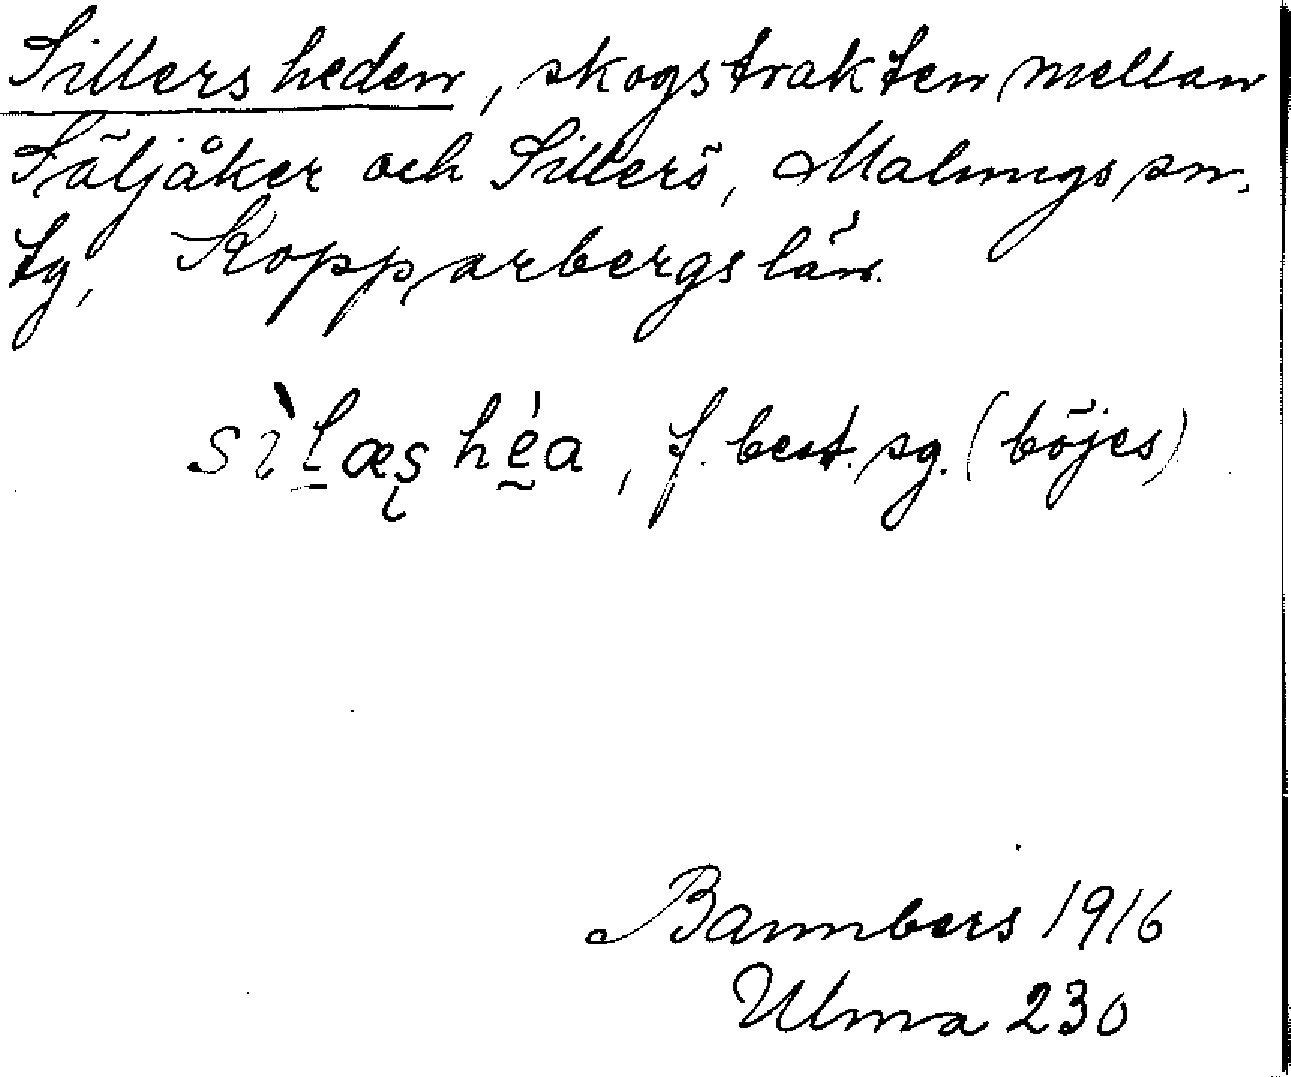 Sillersheden, skogstrakten mellan
Säljåker och Sillerö, Malungs sn.
tg, Kopparbergs län.
sìlæs̨ hḛ́a, f. best. sg. (böjes)
Bannbers 1916
Ulma 230